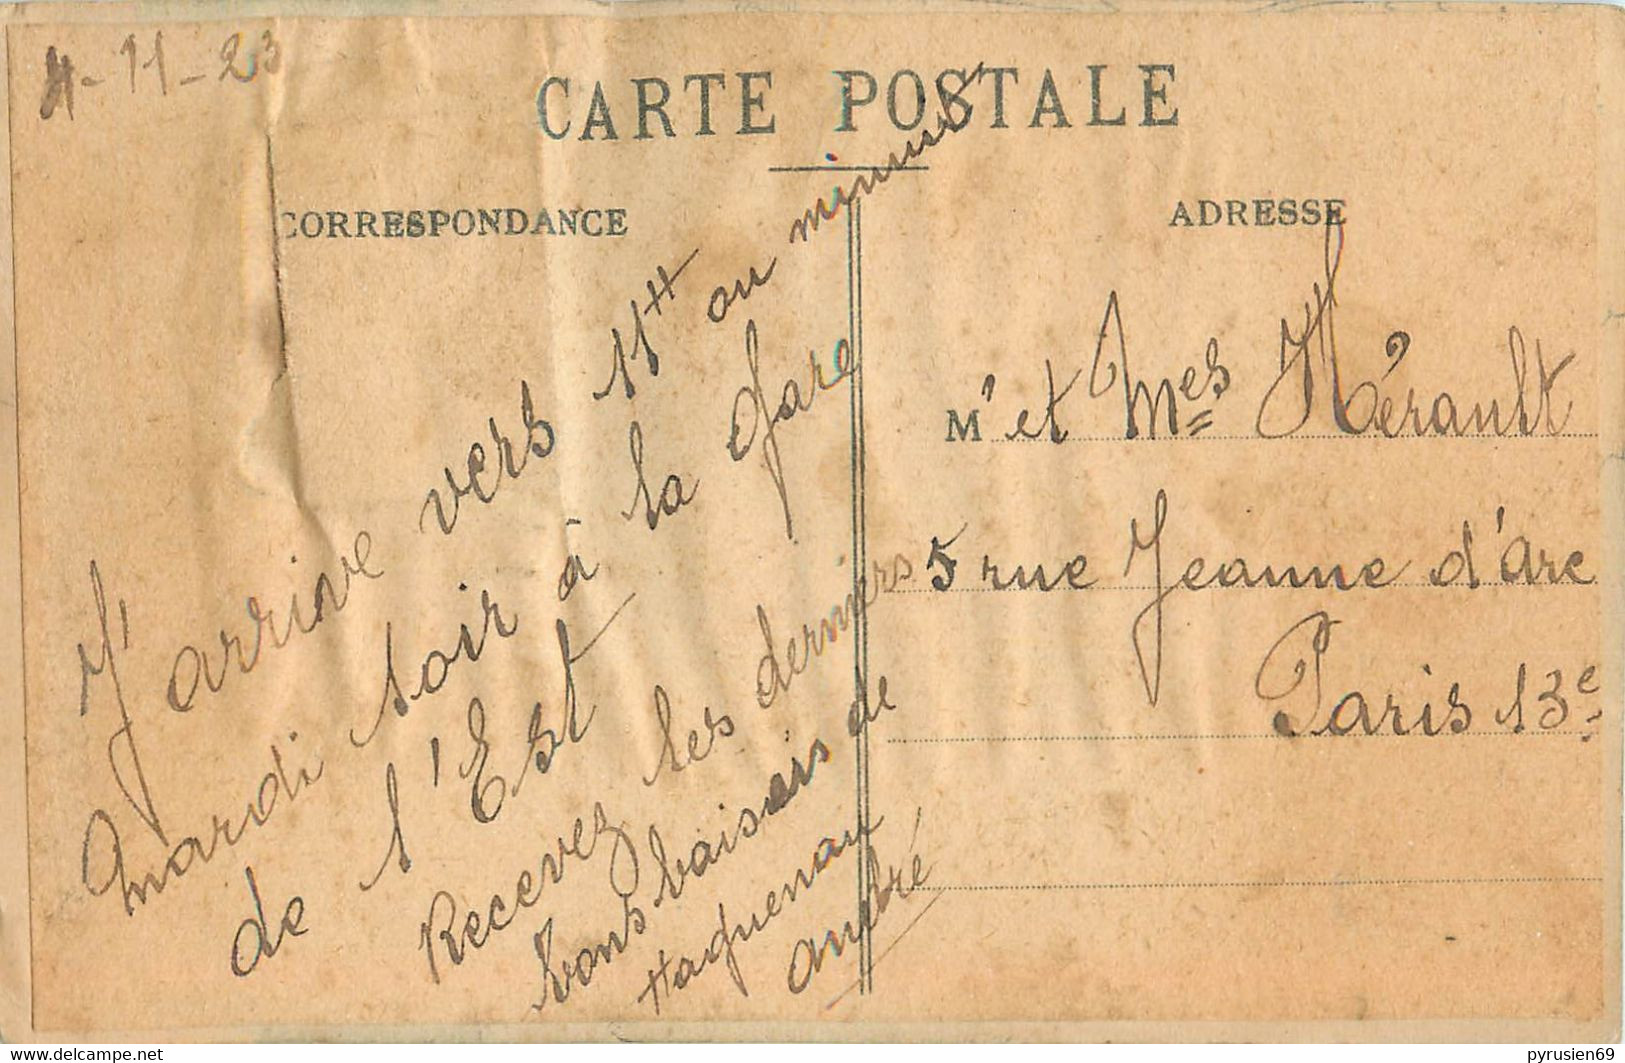 4-11-23
CARTE POSTALE
CORRESPONDANCE
ADRESSE
J'arrive vers 11H ou minuit
mardi soir à la Gare
de l'Est
Recevez les derniers
bons baisers de
Haguenau
André
M' et Mes Hérault
5 rue Jeanne d'Arc
Paris 13e
www.delcampe.net
pyrusien69